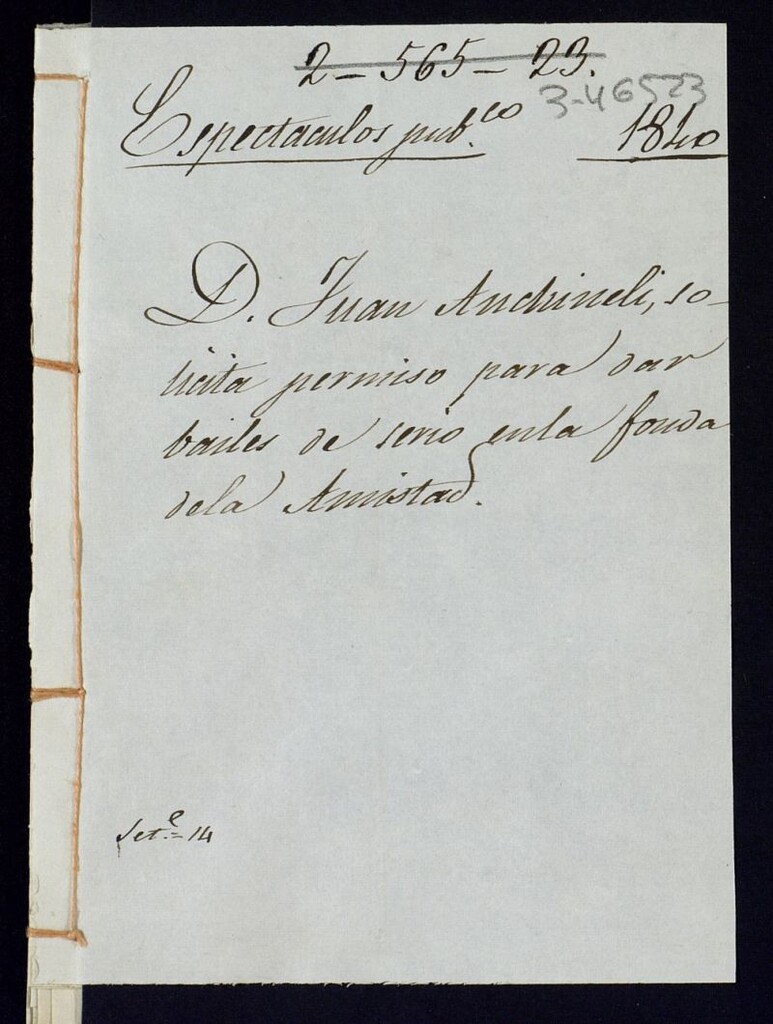 2-565-23.
3-46523
Espectaculos pub.cos 1840
D. Juan Anchineli, so-
licita permiso para dar
bailes de serio en la fonda
de la Amistad.
Set.e = 14